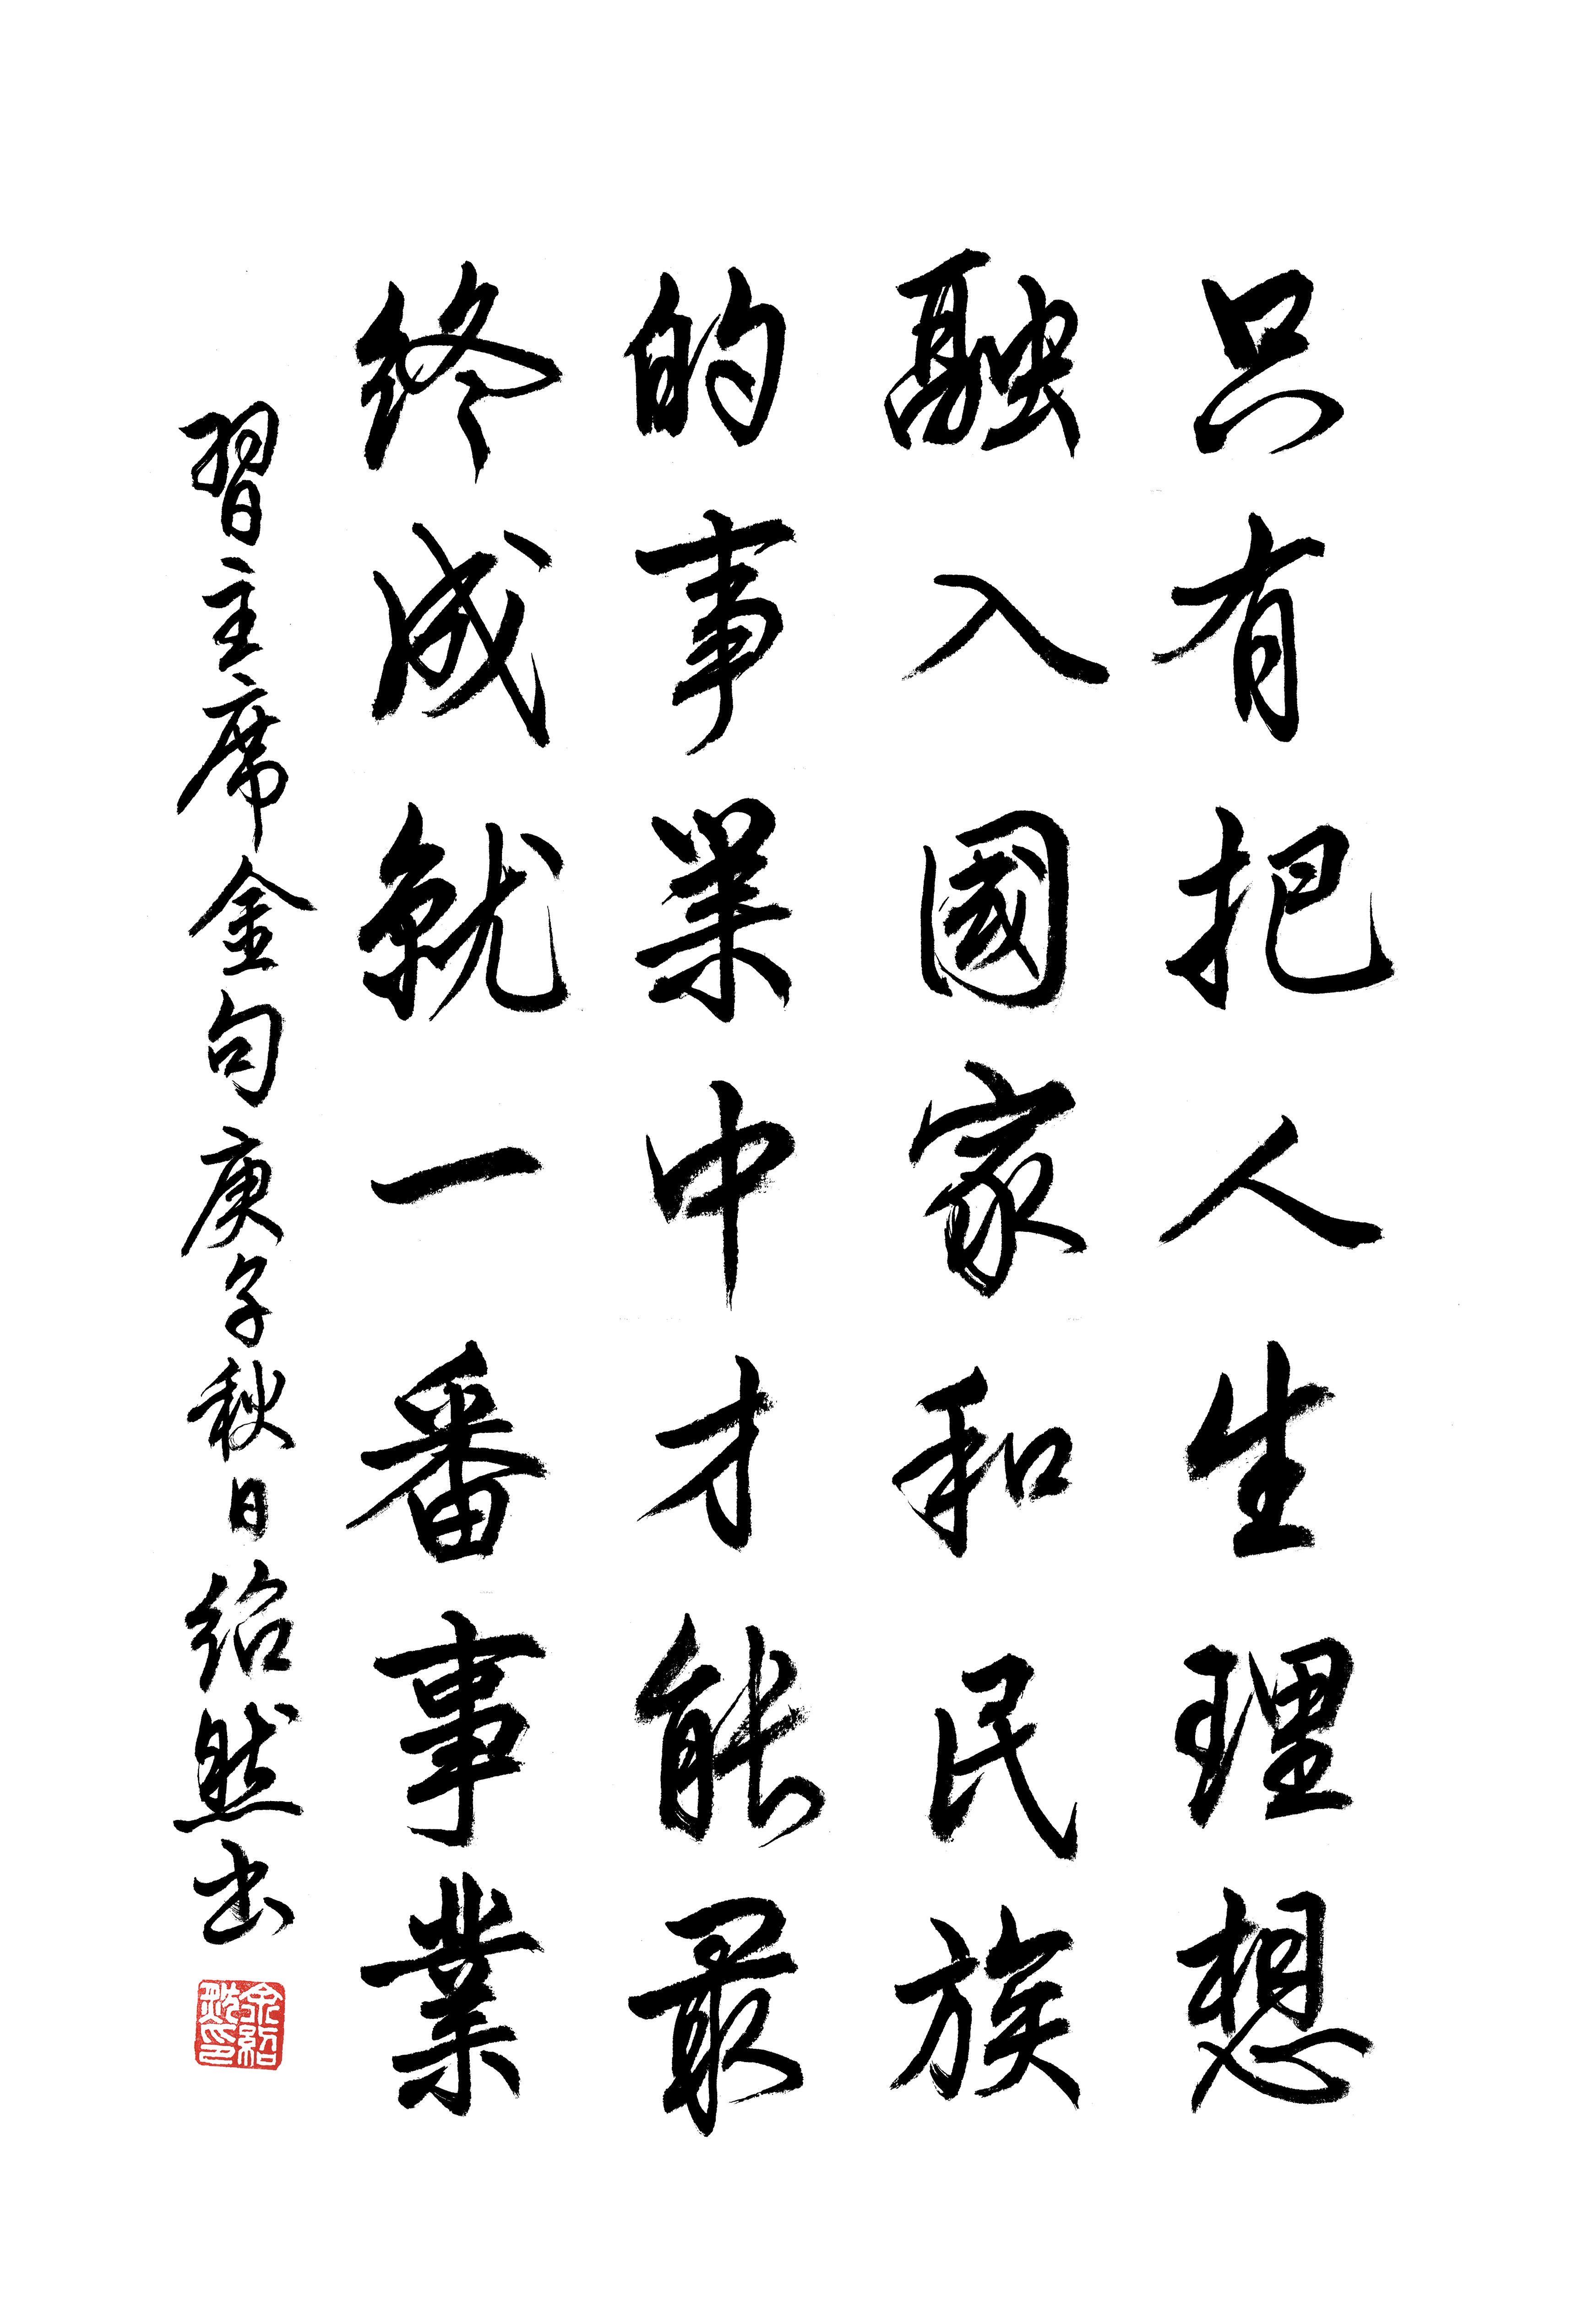 只有把人生理想
融入國家和民族
的事業中才能最
終成就一番事業
習主席金句庚子秋日紹然书
余紹然印